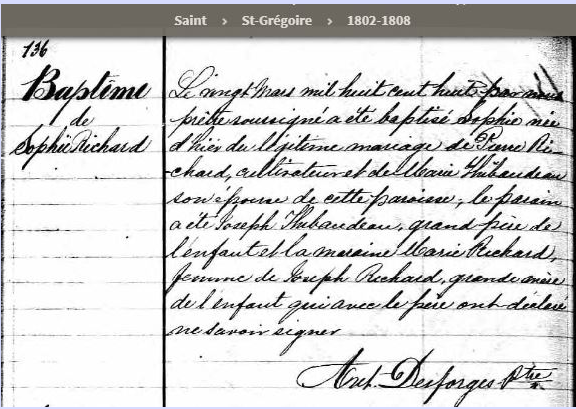 Saint › St-Grégoire › 1802-1808
136
Baptême
de
Sophie Richard
Le vingt Mars mil huit cent huit par nous
prêtre soussigné a été baptisé Sophie née
d'hier du légitime mariage de Pierre Ri-
chard, cultivateur et de Marie Thibaudeau
son épouse de cette paroisse; le parain
a été Joseph Thibaudeau, grand père de
l'enfant et la maraine Marie Richard,
femme de Joseph Richard, grande mère
de l'enfant qui avec le père ont déclaré
ne savoir signer
Ant. Desforges Ptre